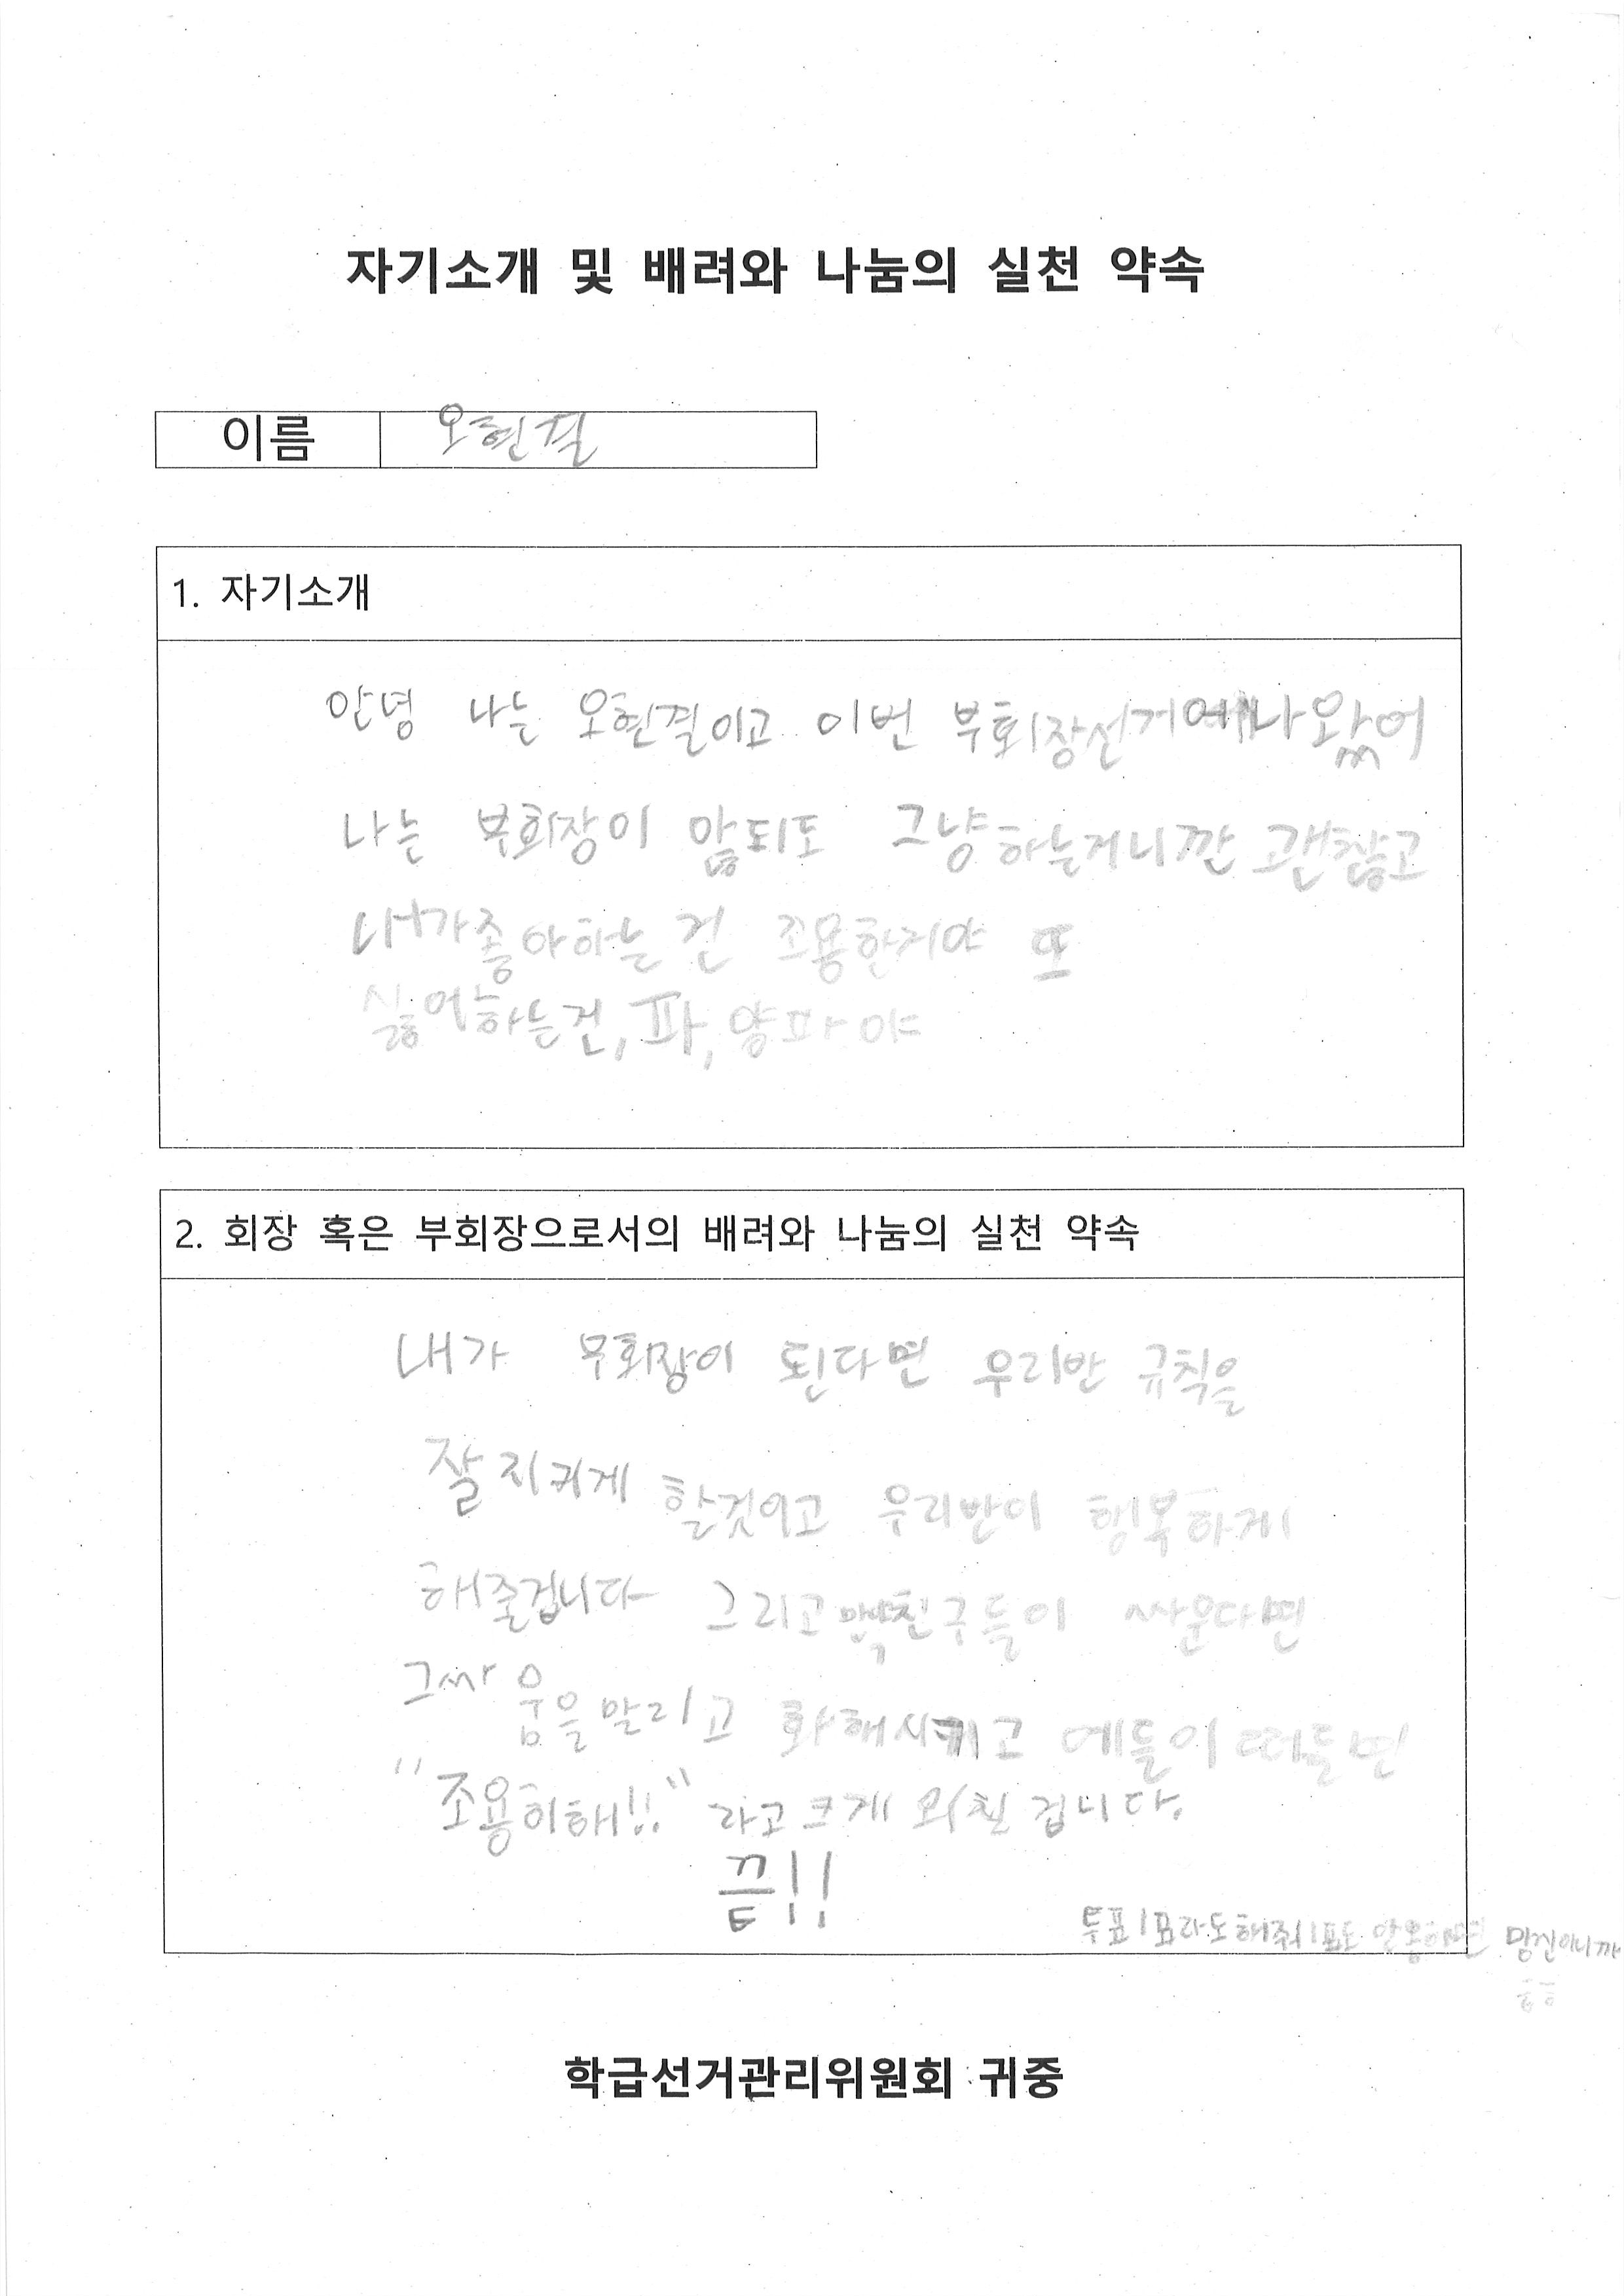 자기소개 및 배려와 나눔의 실천 약속
이름 오현결
1. 자기소개
안녕 나는 오현결이고 이번 부회장선거에나왔어
나는 부회장이 않되도 그냥하는거니깐 괜찮고
내가좋아하는 건 조용한거야 또
싫어하는건, 파, 양파야
2. 회장 혹은 부회장으로서의 배려와 나눔의 실천 약속
내가 부회장이 된다면 우리반 규칙을
잘지키게 할것이고 우리반이 행복하게
해줄겁니다 그리고만약친구들이 싸운다면
그싸움을말리고 화해시키고 예들이떠들면
"조용히해!!" 라고크게 외칠겁니다.
끝!!
투표1표라도해줘1표도 안하면 망신이니까
ㅎㅎ
학급선거관리위원회 귀중